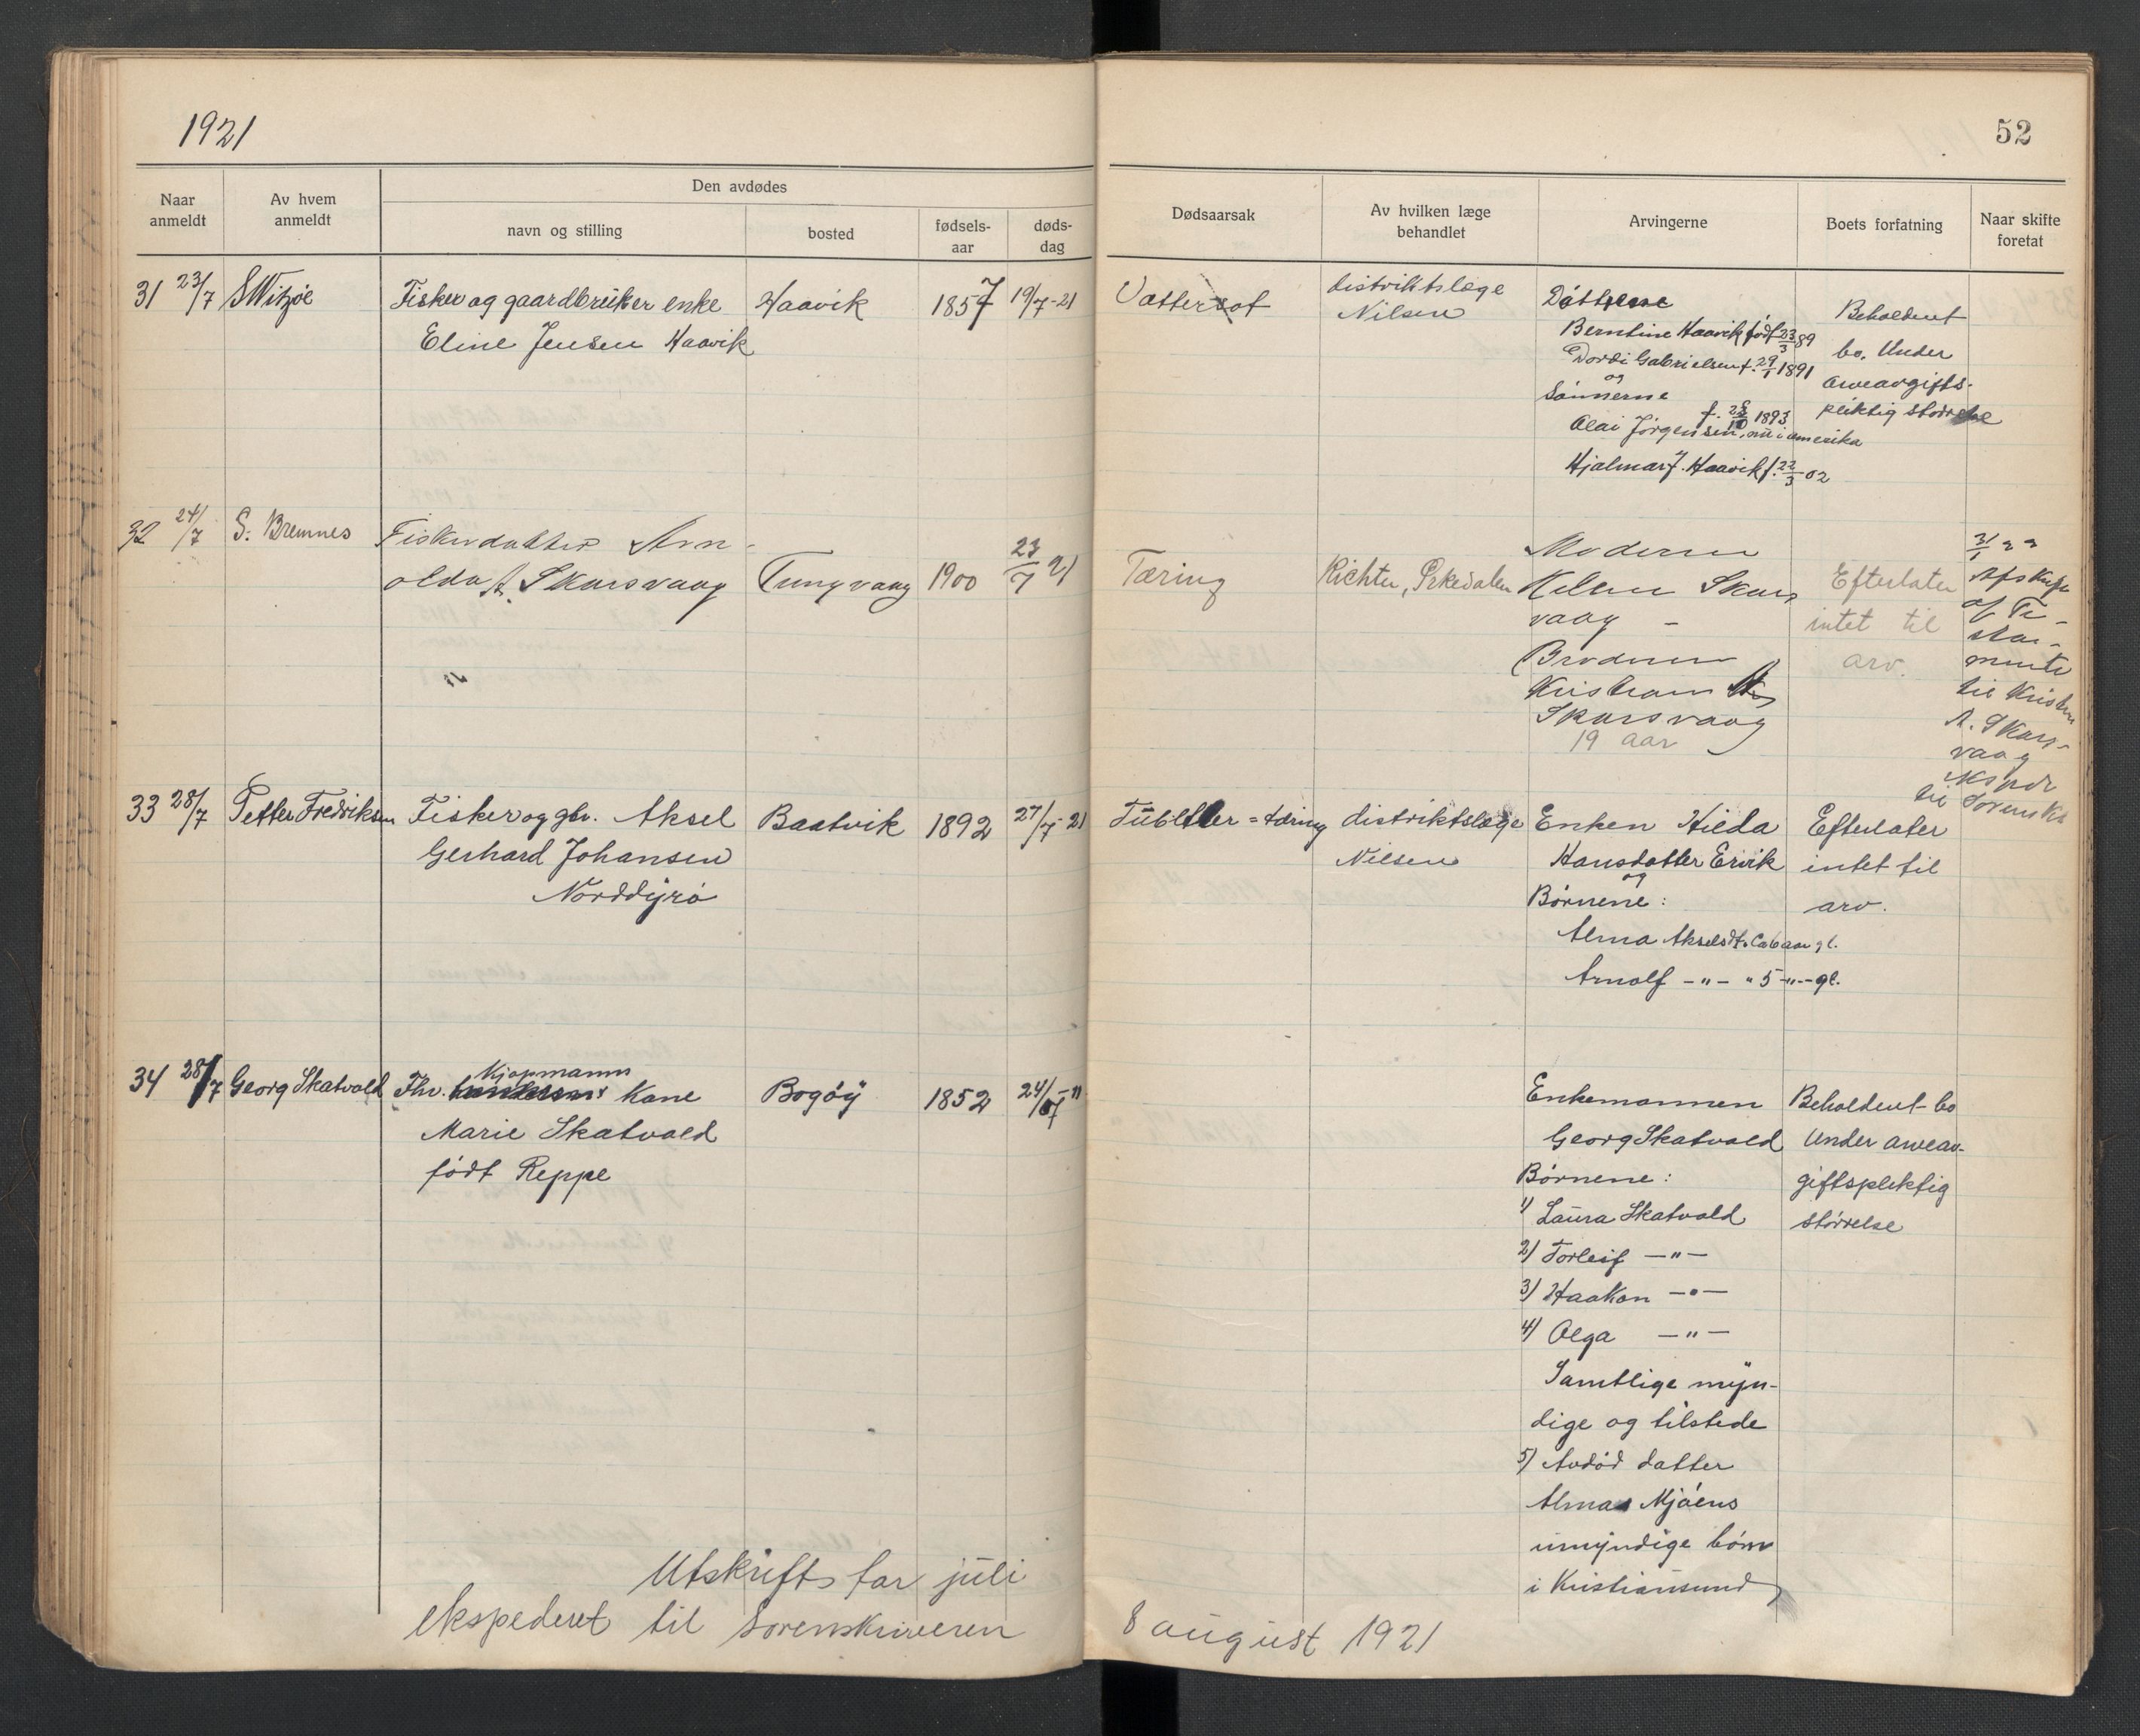 1921
52
Naar anmeldt
Av hvem anmeldt
Den avdødes
navn og stilling
bosted
fødsels-aar
døds-dag
Dødsaarsak
Av hvilken læge behandlet
Arvingerne
Boets forfatning
Naar skifte foretat
31 23/7 S Witzøe
Fisker og gaardbruker enke
Eline Jensen Haavik
Haavik
1857
19/7-21
Vattersot
distriktslæge
Nilsen
Døttrene
Berntine Haavik født 23/3 89
Dordi Gabrielsen f. 29/1 1891
og
Sønnerne
f. 28/10 1893
Olai Jørgensen, nu i amerika
Hjalmar J. Haavik f. 22/3-02
Beholdent
bo. Under
arveavgifts-
pliktig størrelse
32 24/7 S. Bremnes
Fiskerdatter Arn-
olda A. Skarsvaag
Tungvaag
1900
23/7 21
Tæring
Richter, Orkedalen
Moderen
Helen Skars
vaag -
Broderen
Kristian
Skarsvaag
19 aar
Efterlater
intet til
arv.
31/1 22
Afskrift
af Te-
sta-
mente
til Kristen
A. Skars-
vaag
til Sorensk
33 28/7 Petter Fredriksen
Fisker og gbr. Aksel
Gerhard Johansen
Norddyrø
Baatvik
1892
27/7-21
Tuberkler=tæring
distriktslæge
Nilsen
Enken Hilda
Hansdatter Ervik
og
Børnene:
Alma Akselsdt. Ca 6 aar gl.
Arnolf -"- " 5 -"- gl.
Efterlater
intet til
arv.
34 28/7 Georg Skatvold
Kjøpmann
Fhv. Kone
Marie Skatvold
født Reppe
Bogøy
1852
24/7-"
Enkemannen
Georg Skatvold
Børnene:
1) Laura Skatvold
2) Torleif -"-
3) Haakon -"-
4) Olga -"-
Samtlige myn-
dige og tilstede
5) Avdød datter
Almas Mjøens
umyndige børn
i Kristiansund
Beholdent bo
Under arveav-
giftspliktig
størrelse
Utskrifts for juli
ekspederet til Sorenskriveren
8 august 1921